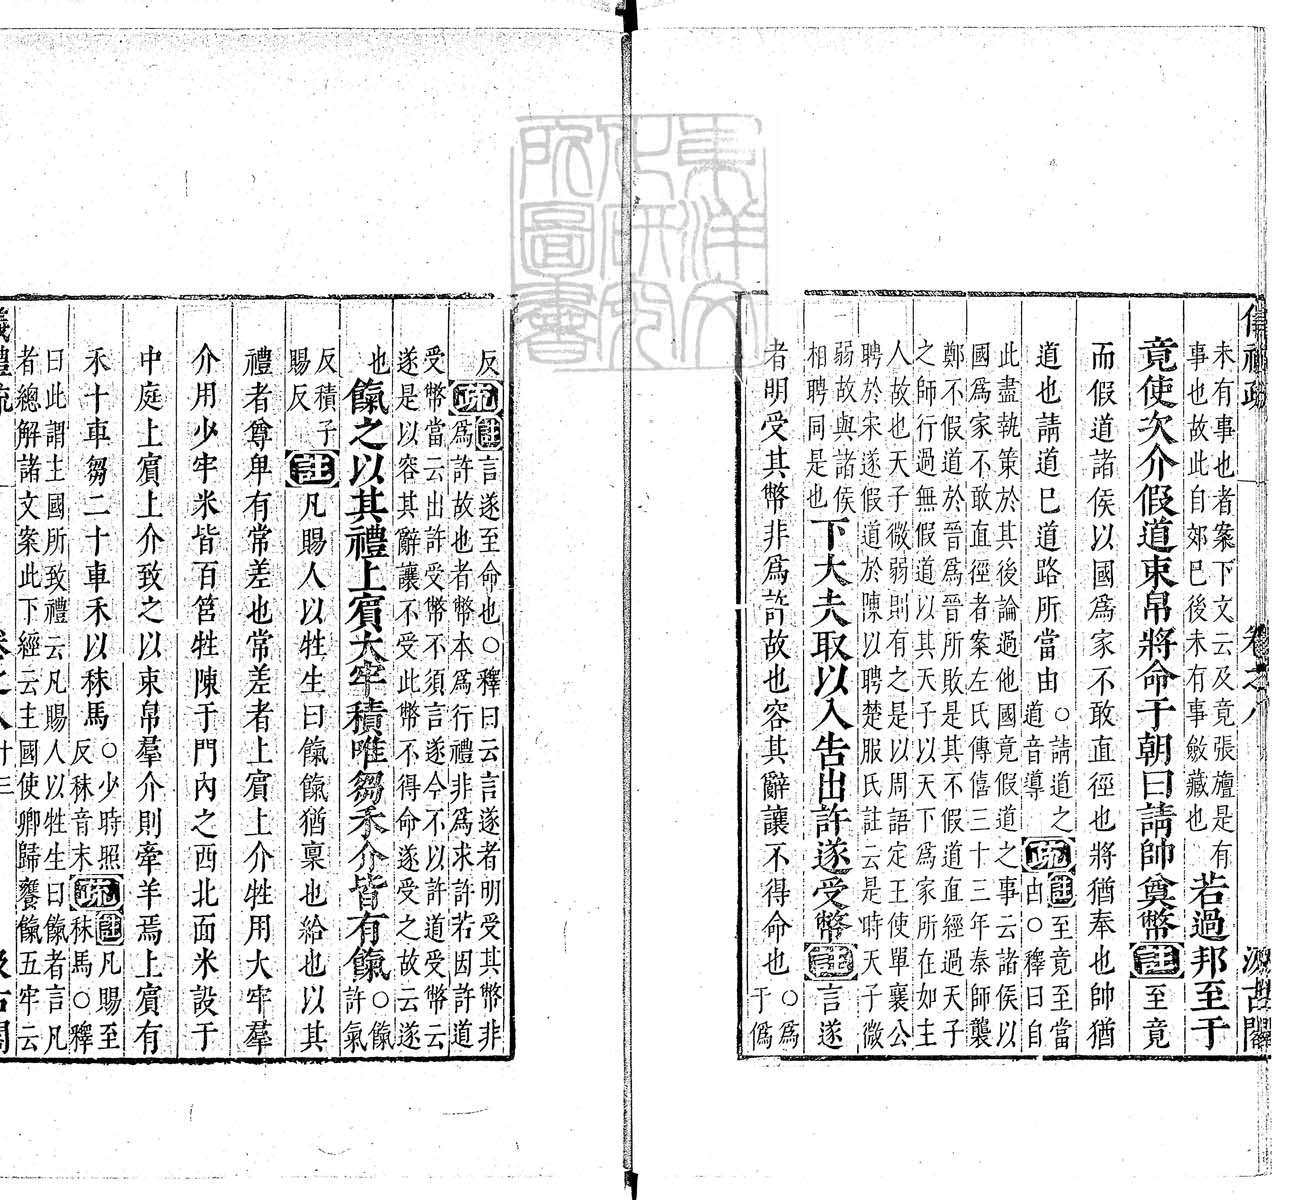 未有事也者案下文云及竟張旜是有
事也故此自郊巳後未有事斂藏也
若過邦至于
竟使次介假道束帛將命于朝曰請帥奠幣註至竟
而假道諸侯以國爲家不敢直徑也將猶奉也帥猶
道也請道巳道路所當由
○請道之
道音導
疏註至竟至當
由○釋曰自
此盡執策於其後論過他國竟假道之事云諸侯以
國爲家不敢直徑者案左氏傳僖三十三年秦師襲
鄭不假道於晉爲晉所敗是其不假道直經過天子
之師行過無假道以其天子以天下爲家所在如主
人故也天子微弱則有之是以周語定王使單襄公
聘於宋遂假道於陳以聘楚服氏註云是時天子微
弱故與諸侯
相聘同是也
下大夫取以入告出許遂受幣註言遂
者明受其幣非爲許故也容其辭讓不得命也
○爲
于僞
反疏註言遂至命也○釋曰云言遂者明受其幣非
爲許故也者幣本爲行禮非爲求許若因許道
受幣當云出許受幣不須言遂今不以許道受幣云
遂是以容其辭讓不受此幣不得命遂受之故云遂
也
餼之以其禮上賓大牢積唯芻禾介皆有餼
○餼
許氣
反積子
賜反
註凡賜人以牲生曰餼餼猶稟也給也以其
禮者尊卑有常差也常差者上賓上介牲用大牢羣
介用少牢米皆百筥牲陳于門內之西北面米設于
中庭上賓上介致之以束帛羣介則牽羊焉上賓有
禾十車芻二十車禾以秣馬
○少時照
反秣音末
疏註凡賜至
秣馬○釋
曰此謂主國所致禮云凡賜人以牲生曰餼者言凡
者總解諸文案此下經云主國使卿歸饔餼五牢云
儀禮疏
卷之八
十三
汲古閣